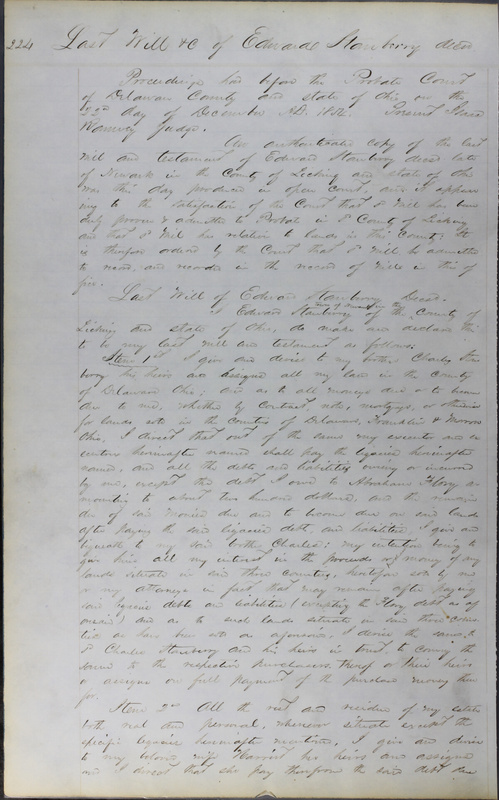 224 Last Will &c of Edward Stanbery decd
Proceedings had before the Probate Court
of Delaware County and state of Ohio on the
22nd day of December A.D. 1854. Present Isaac
Ranney Judge.
An authenticated copy of the last
will and testament of Edward Stanbery decd late
of Newark in the County of Licking and state of Ohio
was this day produced in open court, and it appear
ing to the satisfaction of the Court that sd Will has been
duly proven & admitted to Probate in sd County of Licking
and that sd Will has relation to lands in this County; It
is therefore ordered by the Court that sd Will be admitted
to record, and recorded in the record of Wills in this of
fice.
Last Will of Edward Stanbery Decd.
I Edward Stanbery of the County of
Licking and state of Ohio, do make and declare this
to be my last will and testament as follows:
Item 1st I give and devise to my brother Charles Stan
bery his heirs and assigns all my land in the County
of Delaware Ohio; and as to all moneys due or to become
due to me, whether by contract, note, mortgage, or otherwise
for lands sold in the counties of Delaware, Franklin & Morrow
Ohio, I direct that out of the same my executor and ex
ecutrix hereinafter named shall pay the legacies hereinafter
named, and all the debts and liabilities owing or incurred
by me, except the debt I owe to Abraham Flory a
mounting to about two hundred dollars, and the remain
der of said monies due and to become due on said lands
after paying the said legacies debts and liabilities, I give and
bequeath to my said brother Charles; my intention being to
give him all my interest in the proceeds or money of my
lands situate in said three counties, heretofore sold by me
or my attorneys in fact, that may remain after paying
said legacies debts and liabilities (excepting the Flory debt as afo
resaid) and as to such lands situate in said three coun
ties as have been sold as aforesaid, I devise the same to
sd Charles Stanbery and his heirs in trust, to convey the
same to the respective purchasers thereof or their heirs
or assigns on full payment of the purchase money there
for.
Item 2nd All the rest and residue of my estate
both real and personal, wherever situate except the
specific legacies hereinafter mentioned, I give and devise
to my beloved wife Harriet her heirs and assigns
and I direct that she pay therefrom the said debt due